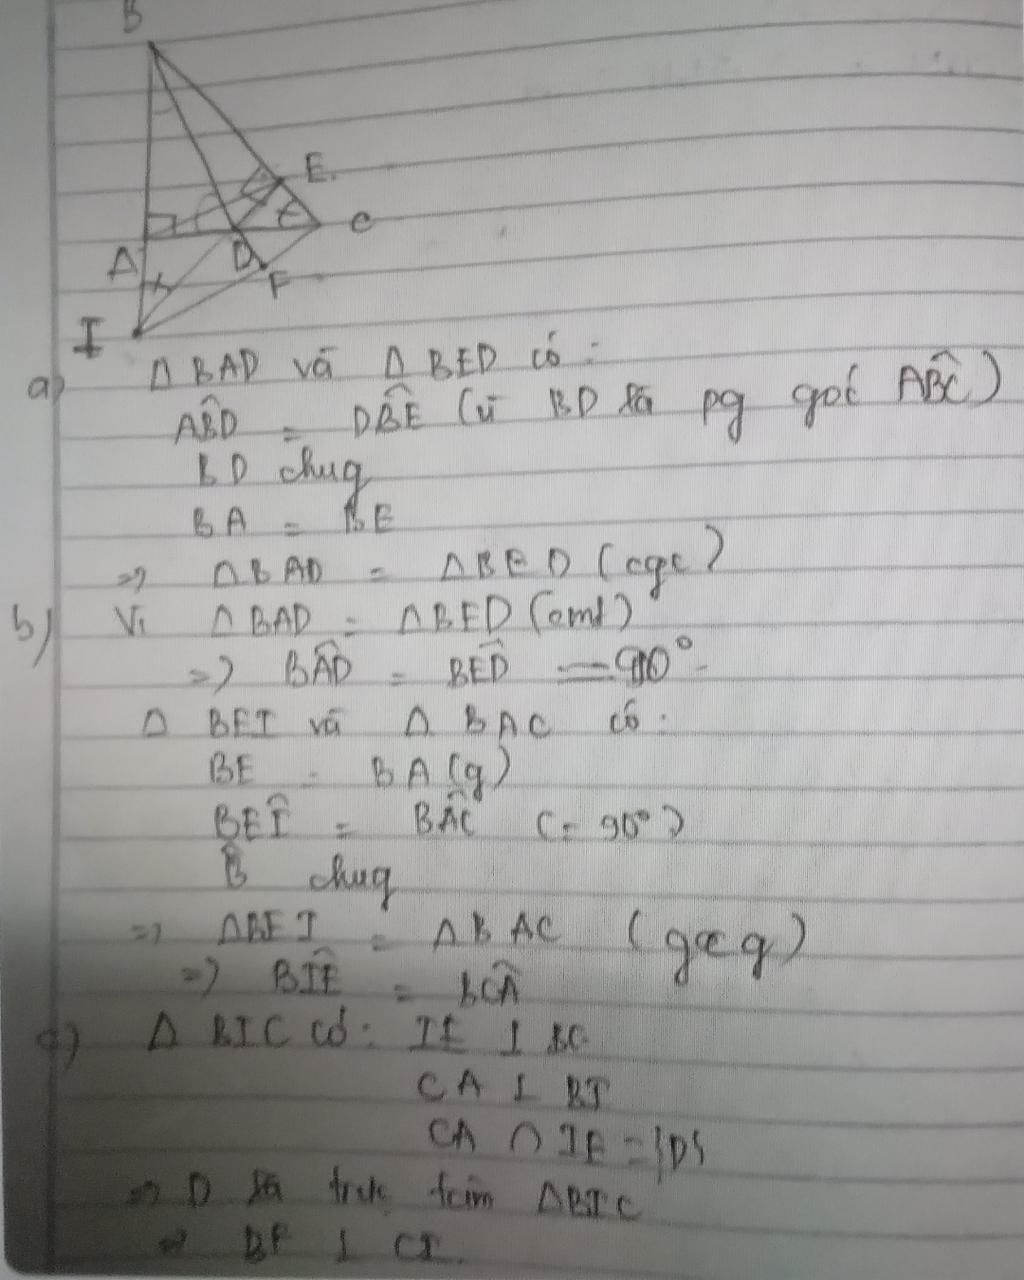 B
E.
C
A
D
F
I
a) Δ BAD và Δ BED có :
ABD̂ = DBÊ (vì BD là pg goć ABĈ)
BD chug
BA = BE
=> ΔBAD = ΔBED (cgc)
b) Vì ΔBAD = ΔBED (cmt)
=> BAD̂ = BED̂ = 90°
Δ BEI và Δ BAC có :
BE = BA (g)
BEÎ = BAĈ (= 90°)
B̂ chug
=> ΔBEI = ΔBAC (gcg)
=> BIÊ = BCÂ
c) Δ BIC có : IE ⊥ BC
CA ⊥ BI
CA ∩ IE = {D}
=> D là trực tâm ΔBIC
=> BF ⊥ CI.